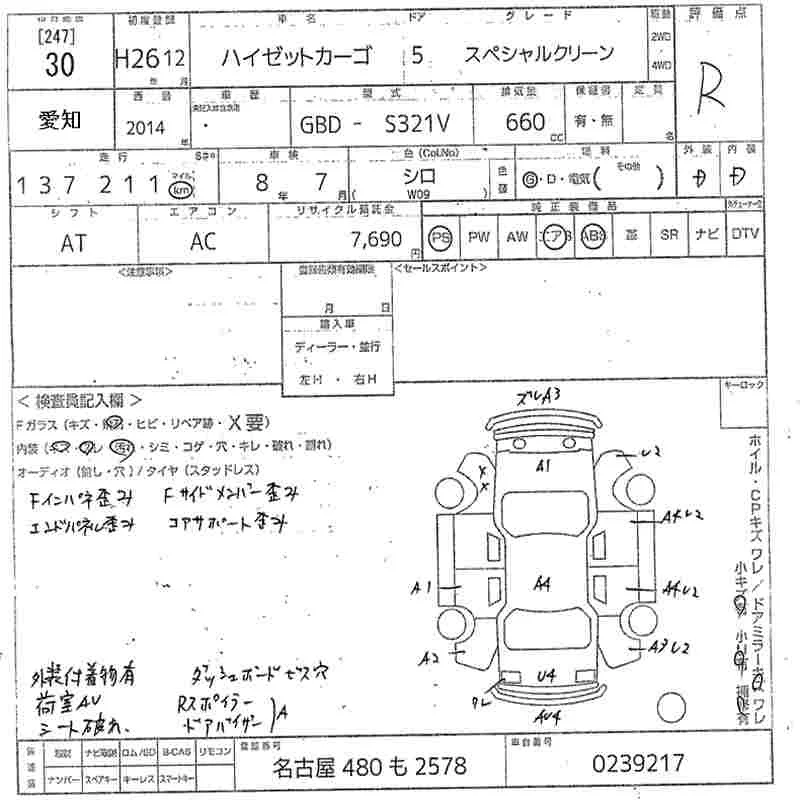 初度登録 車名 ドア グレード 評価点
[247]
30 H26 12 ハイゼットカーゴ 5 スペシャルクリーン 2WD 4WD R
年 月
西暦 車歴 型式 排気量 保証書 定員
愛知 2014 年 ・ GBD - S321V 660 cc 有・無 名
走行 車検 色(Col.No) 燃料 外装 内装
137211 マイル km 8 年 7 月 シロ ( W09 ) G・D・電気( その他 ) D D
シフト エアコン リサイクル預託金 純正装備品
AT AC 7,690 円 PS PW AW エアB ABS 革 SR ナビ DTV
<注意事項> <セールスポイント>
月 日
輸入車
ディーラー・並行
左H ・ 右H
キーロック
< 検査員記入欄 >
Fガラス (キズ・飛石・ヒビ・リペア跡・X要)
内装 (キズ・クレ・汚れ・シミ・コゲ・穴・キレ・破れ・割れ)
オーディオ (無し・穴) / タイヤ (スタッドレス)
Fインパネ歪み Fサイドメンバー歪み
エンドパネル歪み コアサポート歪み
ズレA3
A1
U2
A4U2
A1 A4 A4U2
A2 A3U2
U4
ワレ
AU4
ホイル・CPキズ ワレ / ドアミラーキズ ワレ
外装付着物有 ダッシュボードビス穴
荷室AU Rスポイラー
シート破れ、 ドアバイザー A
ナビ取説 ロム/SD B-CAS リモコン 登録番号 車台番号
ナンバー スペアキー キーレス スマートキー
名古屋 480 も 2578 0239217